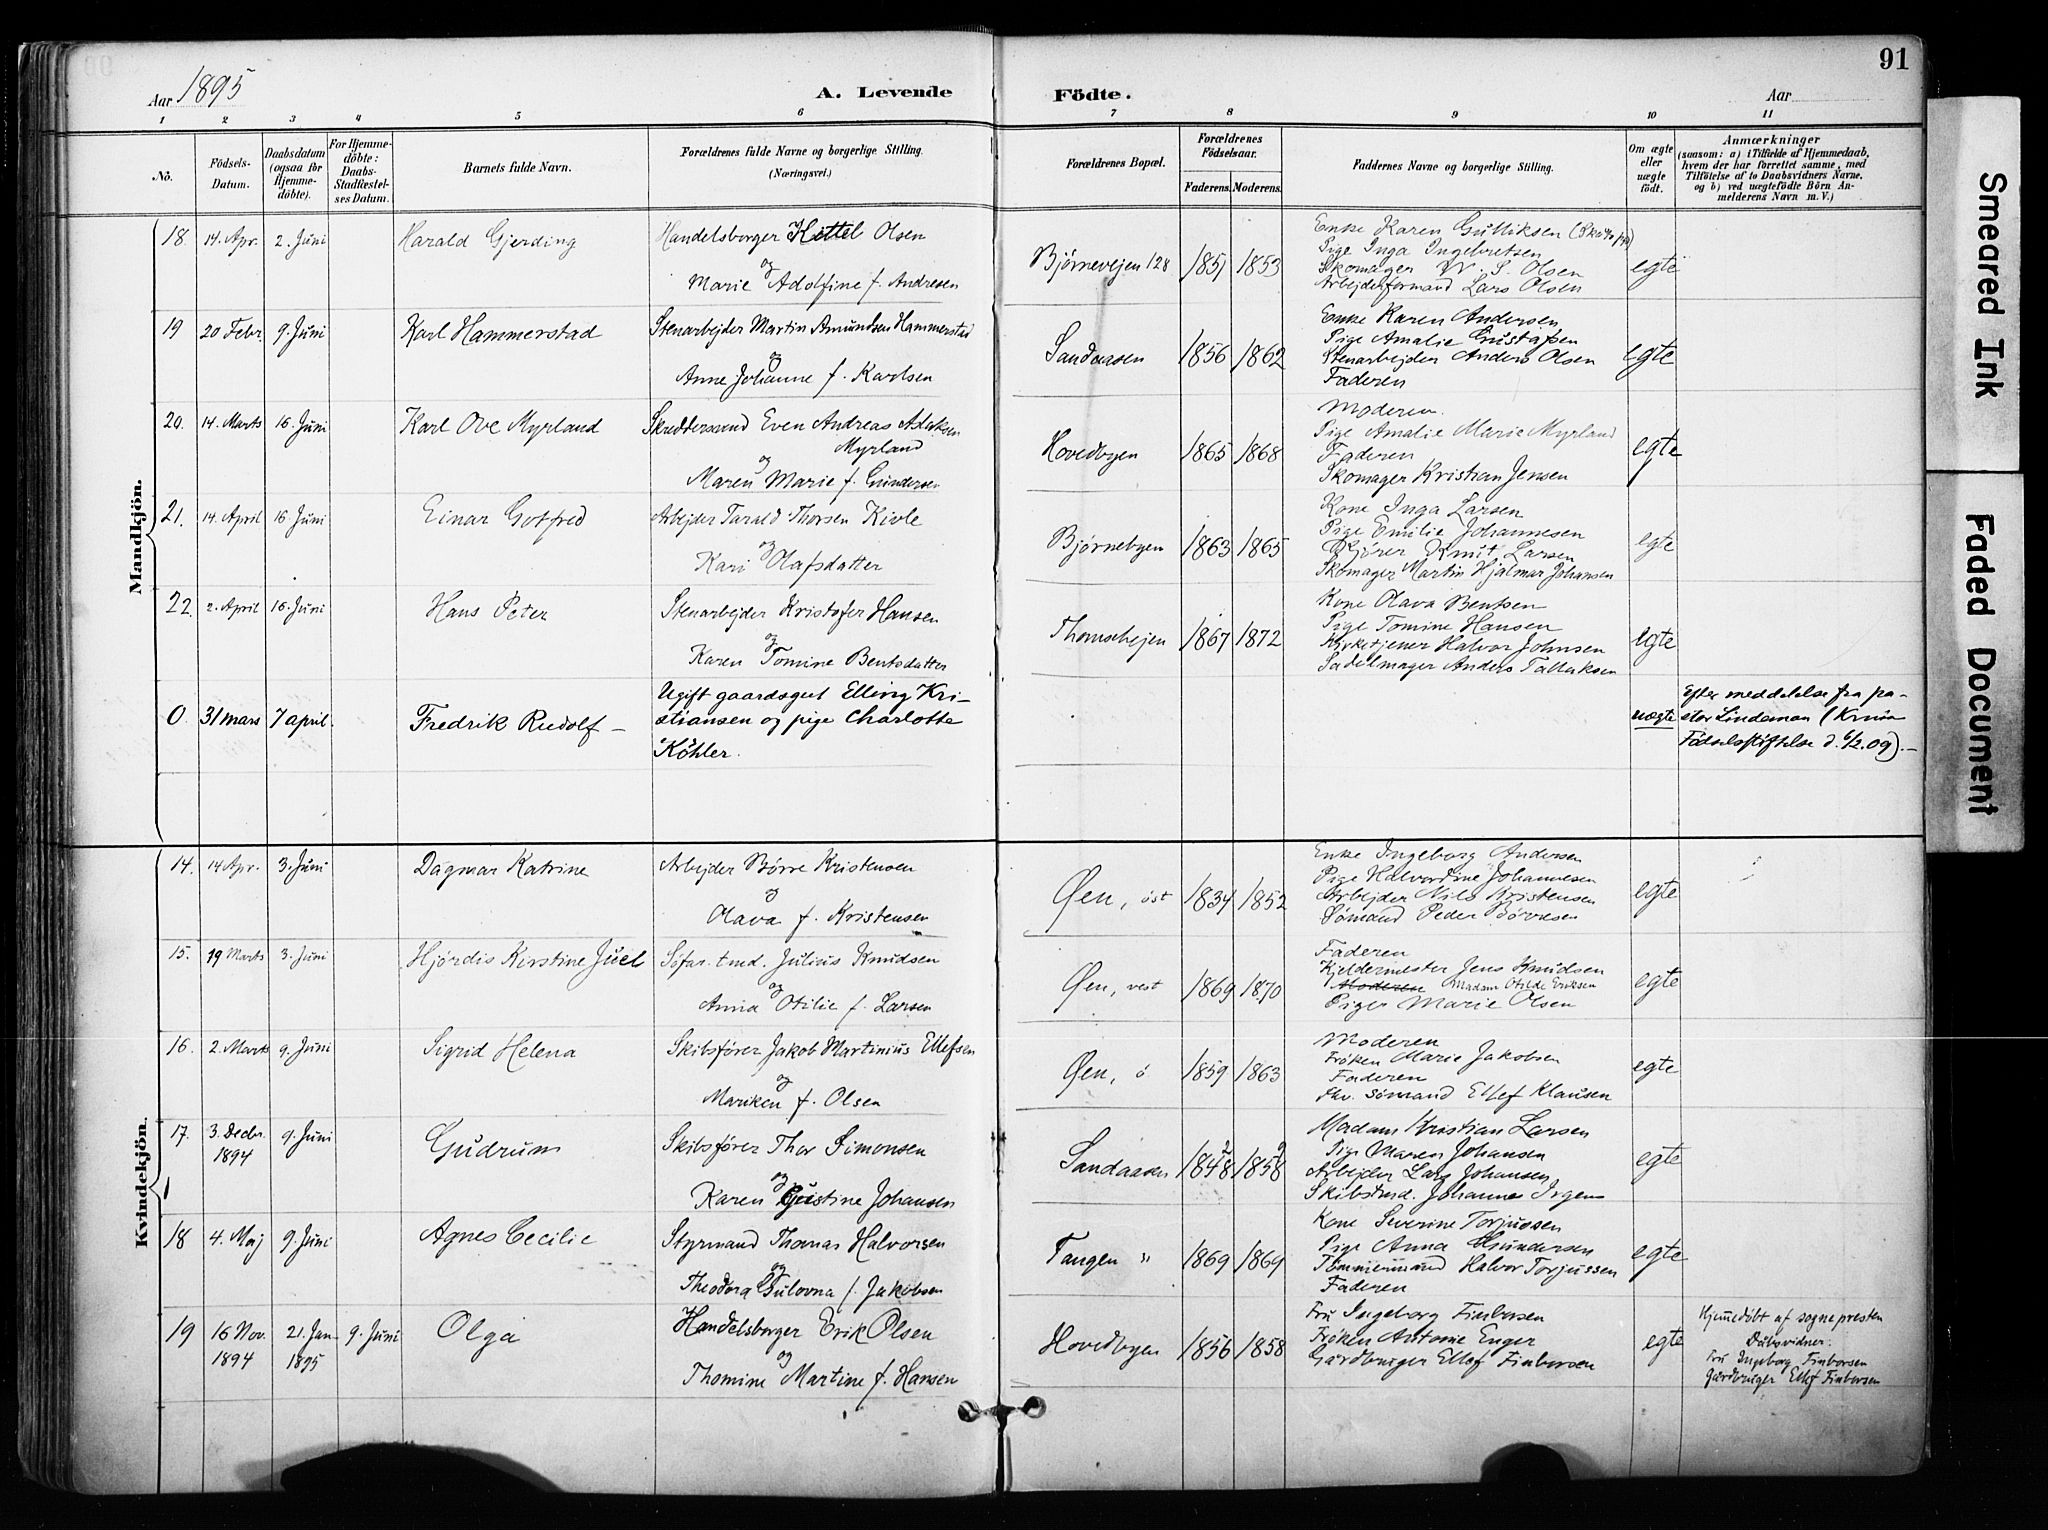 91
Aar 1895
A. Levende Fødte.
Aar
1 2 3 4 5 6 7 8 9 10 11
No.
Födsels-Datum.
Daabsdatum (ogsaa for Hjemme-döbte).
For Hjemme-döbte: Daabs-Stadfæstel-ses Datum.
Barnets fulde Navn.
Forældrenes fulde Navne og borgerlige Stilling.
(Næringsvei.)
Forældrenes Bopæl.
Forældrenes Födselsaar.
Faderens. Moderens.
Faddernes Navne og borgerlige Stilling.
Om ægte eller uægte født.
Anmærkninger
(saasom: a) i Tilfælde af Hjemmedaab,
hvem der har forrettet samme, med
Tilföielse af to Daabsvidners Navne,
og b) ved uægtefödte Börn An-
melderens Navn m. V.)
Mandkjön.
18. 14. Apr. 2. Juni Harald Gjerding
Handelsborger Kittel Olsen
og
Marie Adolfine f. Andresen
Bjørnevejen 128 1851 1853
Enke Karen Gulliksen
Pige Inga Ingebretsen
Skomager W. S. Olsen
Arbejdsformand Lars Olsen
egte
19 20 Febr. 9. Juni Karl Hammerstad
Stenarbejder Martin Amundsen Hammerstad
og
Anne Johanne f. Karlsen
Sandaasen 1856 1862
Enke Karen Andersen
Pige Amalie Gustafsen
Stenarbejder Anders Olsen
Faderen
egte
20. 14. Marts 16. Juni Karl Ove Myrland
Skræddersvend Even Andreas Adaksen
Myrland
og
Maren Marie f. Gundersen
Hovedbyen 1865 1868
Moderen.
Pige Amalie Marie Myrland
Faderen
Skomager Kristian Jensen
egte
21. 14. April 16 Juni Einar Gotfred
Arbejder Tarald Thorsen Kivle
og
Kari Olafsdatter
Bjørnebyen 1863 1865
Kone Inga Larsen
Pige Emilie Johannesen
Kjører Knut Larsen
Skomager Martin Hjalmar Johansen
egte
22. 2. April 16. Juni Hans Peter
Stenarbejder Kristofer Hansen
og
Karen Tomine Bentsdatter
1867 1872
Kone Olava Bentsen
Pige Tomine Hansen
Kirketjener Halvor Johnsen
Sadelmager Anders Tallaksen
egte
0. 31 mars 7 april. Fredrik Rudolf –
Ugift gaardsgut Elling Kri-
stiansen og pige Charlotte
Köhler.
uægte
Efter meddelelse fra pa-
stor Lindeman (
Fødselsstiftelse d. 6/2.09). –
Kvindekjön.
14. 14 Apr. 3. Juni Dagmar Katrine
Arbejder Börre Kristensen
og
Olava f. Kristensen
Øen, öst 1834 1852
Enke Ingeborg Andersen
Pige Halvordine Johannesen
Arbejder Nils Kristensen
Sømand Peder Børresen
egte
15. 19 Marts 3. Juni Hjørdis Kirstine Juel
Søfar. tmd. Julius Knudsen
og
Anna Otilie f. Larsen
Øen, vest 1869 1870
Faderen
Kjeldermester Jens Knudsen
Moderen Madam Otilde Eriksen
Piger Marie Olsen
egte
16. 2. Marts 9. Juni Sigrid Helena
Skibsfører Jakob Martinius Ellefsen
og
Mariken f. Olsen
Øen, ö 1859 1863
Moderen
Frøken Marie Jakobsen
Faderen
fhv. Sømand Ellef Klausen
egte
17. 3. Decbr. 1894 9. Juni Gudrum
Skibsfører Thor Simonsen
og
Karen Gustine Johansen
Sandaasen 1848 1858
Madam Kristian Larsen
Pige Maren Johansen
Arbejder Lars Johansen
Skibstmd. Johannes Irgens
egte
18 4. Maj 9. Juni Agnes Cecilie
Styrmand Thomas Halvorsen
og
Theodora Gulovna f. Jakobsen
Tangen " 1869 1869
Kone Severine Torjussen
Pige Anna Gundersen
Tömmermand Halvor Torjussen
Faderen
egte
19 16 Nov. 1894 21. Jan 1895 9. Juni Olga
Handelsborger Erik Olsen
og
Thomine Martine f. Hansen
Hovedbyen 1856 1858
Fru Ingeborg Finborsen
Frøken Antonie Enger
Gårdbruger Ellef Finborsen
egte
Hjemedöbt af sognepresten
Dåbsvidner:
Fru Ingeborg Finborsen
Gårdbruger Ellef Finborsen
Smeared Ink
Faded Document